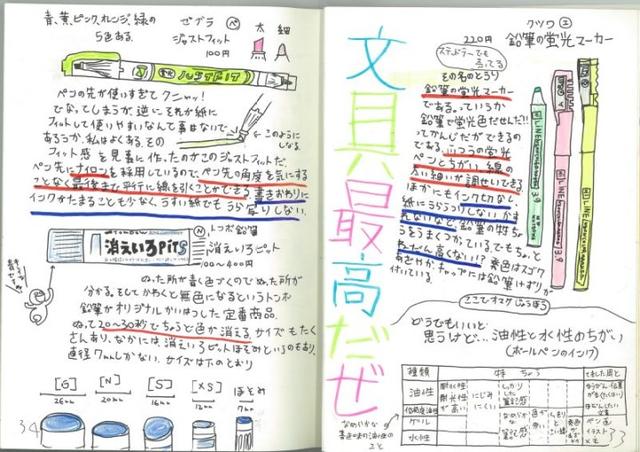 青、黄、ピンク、オレンジ、緑の
5色ある。
ゼブラ ペ
ジャストフィット
100円
太 細
JUSTFIT
ペンの先が使いすぎてクニャッ!
でなってしまうが、逆に それが紙に
フィットして使いやすいなんて事はないで
あろうか、私はよくある。その
フィット感を見事に作ったのがこのジャストフィットだ。
このように
なる。
ペン先にナイロンを採用しているので、ペン先の角度を気にする
ことなく最後まで引けたに線を引くことができる 書きおわりに
インクがたまることも少なく、うすい紙でもうらうつりしない。
消えいろPiTS
トンボ鉛筆
消えいろピット
100~400円
ぬった所が青く色づくのでぬった所が
分かる。そしてかわくと無色になるというトンボ
鉛筆がオリジナルがいはつした定番商品。
ぬって20~30秒でちょうど色が消える。サイズもたく
さんあり、なかには、消えいろピットほそみというのもあり、
直径7mmしかない。サイズは下のとおり
[G]
[N]
[S]
[XS]
ほそみ
7mm
34
文具最高だぜ
クツワ エ
220円 鉛筆の蛍光マーカー
ステッドラーでも
売ってる
その名のとうり
鉛筆の蛍光マーカー
である。っていうか
鉛筆で蛍光色だせんだ!!
ってかんじだができるの
である。ふつうの蛍光
ペンとちがい 線の
太い細いが調せいできる
ほかにもインク切れなし、
紙にうらうつりしないが
れないなど鉛筆の特ちょ
うをうまくつかっている。でもちょっと
ねだん高くない!? 発色はスゴク
あざやか、キャップには鉛筆けずりが
付いている。
ここでオマケじょうほう
どうでもいいと
思うけど… 油性と水性のちがい
(ボールペンのインク)
種類
特ちょう
油性
低粘度油性
ゲル
水性
耐水性
耐光性
が高い
にじみ
にくい
しっかり
した
なめらか
なめらかな
書き味の油性の
こと
33